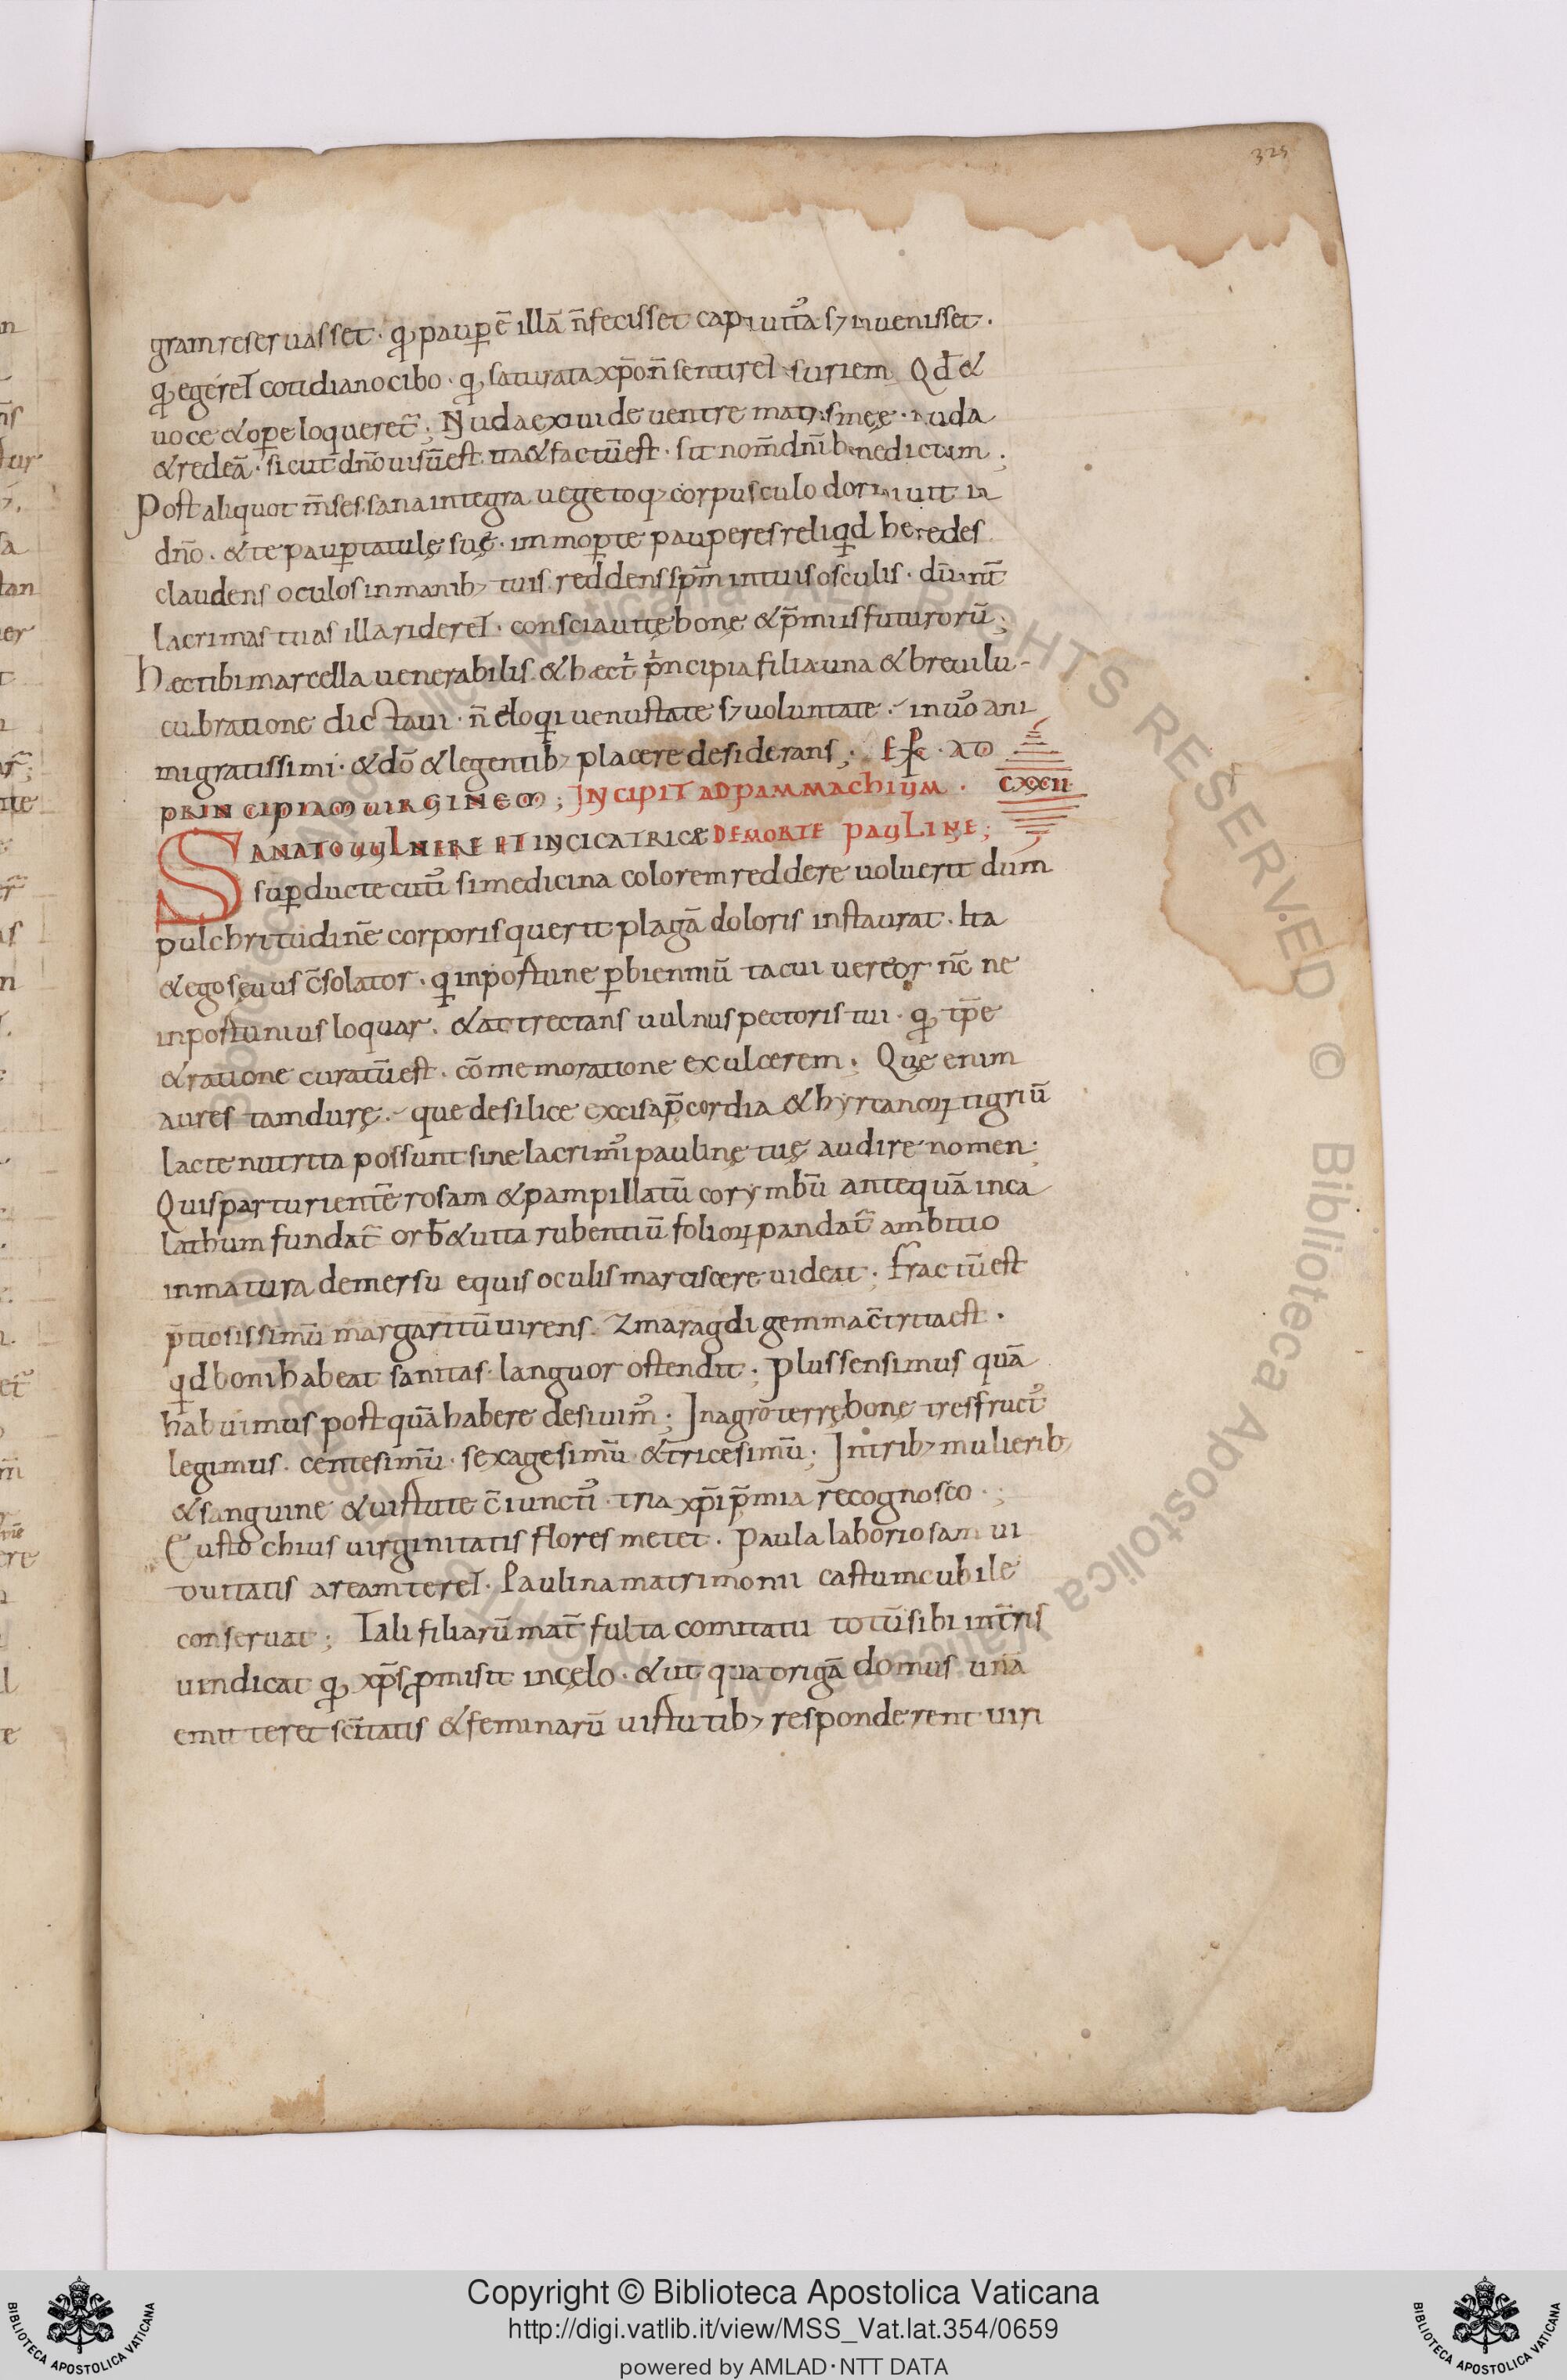 325
gram reseruasset · qđ pauperē illā ñ fecisset captiuitas sꝫ inuenisset ·
qđ egeret cotidiano cibo · qđ saturata xp̄o ñ sentiret esuriem Qd̄ &
uoce & ope loqueret᷑; Nuda exiui de uentre matris meę · nuda
& redeā · sicut dn̄o uisū est ita & factū est · sit nom̄ dn̄i benedictum;
Post aliquot m̄ses sana integra uegetoqꝫ corpusculo dormiuit in
dn̄o · & te paupertatulę suę · immo per te pauperes reliqd heredes
claudens oculos in manibꝫ tuis reddens sp̄m in tuis osculis · dū int̄
lacrimas tuas illa rideret · conscia uitę bonę & p̄miis futurorū;
Hęc tibi marcella uenerabilis & hęc t̓ principia filia una & breui lu-
cubratione dictaui · ñ eloqi uenustate sꝫ uoluntate · in uo᷒ ani
mi gratissimi · & dō & legentibꝫ placere desiderans; EXPĿ · AD
PRINCIPIAM UIRGINEM; INCIPIT AD PAMMACHIUM · CXXII
SANATO UULNERE ET IN CICATRICĘ DE MORTE PAULINE;
superducte cutū si medicina colorem reddere uoluerit dum
pulchritudinē corporis querit plagā doloris instaurat · Ita
& ego sęuus c̄solator · qi inportune per bienniū tacui uereor nc̄ ne
inportunius loquar · & attrectans uulnus pectoris tui · qđ tp̄e
& ratione curatū est · cōmemoratione exulcerem · Quę enim
aures tam durę · que de silice excisa p̄cordia & hyrcanoꝝ tigriū
lacte nutrita possunt sine lacrim᷒i paulinę tuę audire nomen;
Quis parturientē rosam & pampillatū corymbū antequā in ca
lathum fundat᷑ orb̄ & uita rubentiū folioꝝ pandat᷑ ambitio
inmatura demersu equis oculis marciscere uideat; Fractū est
p̄tiosissimū margaritū uirens · Zmaragdi gemma c̄trita est ·
qd boni habeat sanitas · languor ostendit; Plus sensimus quā
habuimus postquā habere desiuim᷒; In agro terrę bonę tres fruct᷒
legimus · centesimū · sexagesimū & tricesimū; In tribꝫ mulieribꝫ
& sanguine & uirtute c̄iuncti᷒ · tria xp̄i p̄mia recognosco ·;
Eustochius uirginitatis flores metet · Paula laboriosam ui
duitatis aream teret · Paulina matrimonii castum cubile
conseruat; Tali filiarū mat̄ fulta comitatu totū sibi in t̄ris
uindicat qđ xp̄s p̄misit in cęlo · & ut quatrigā domus una
emitteret sc̄itatis & feminarū uirtutibꝫ responderent uiri
Copyright © Biblioteca Apostolica Vaticana
http://digi.vatlib.it/view/MSS_Vat.lat.354/0659
powered by AMLAD·NTT DATA
BIBLIOTECA APOSTOLICA VATICANA
BIBLIOTECA APOSTOLICA VATICANA